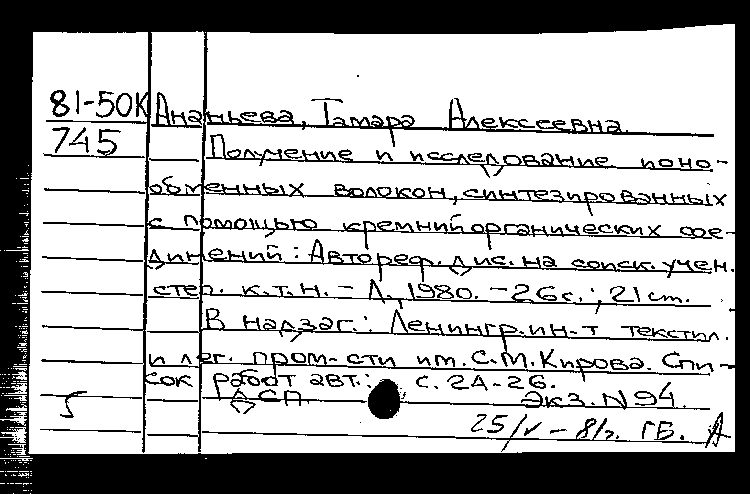 81-50К Ананьева, Тамара Алексеевна
745 Получение и исследование ионо-
обменных волокон, синтезированных
с помощью кремнийорганических сое-
динений: Автореф. дис. на соиск. учен.
степ. к.т.н. - Л., 1980. - 26 с.; 21 cm.
В надзаг.: Ленингр. ин-т текстил.
и лег. пром-сти им. С.М. Кирова. Спи-
сок работ авт.: с. 24-26.
ДСП. Экз. N 94.
25/V - 81г. ГБ. А